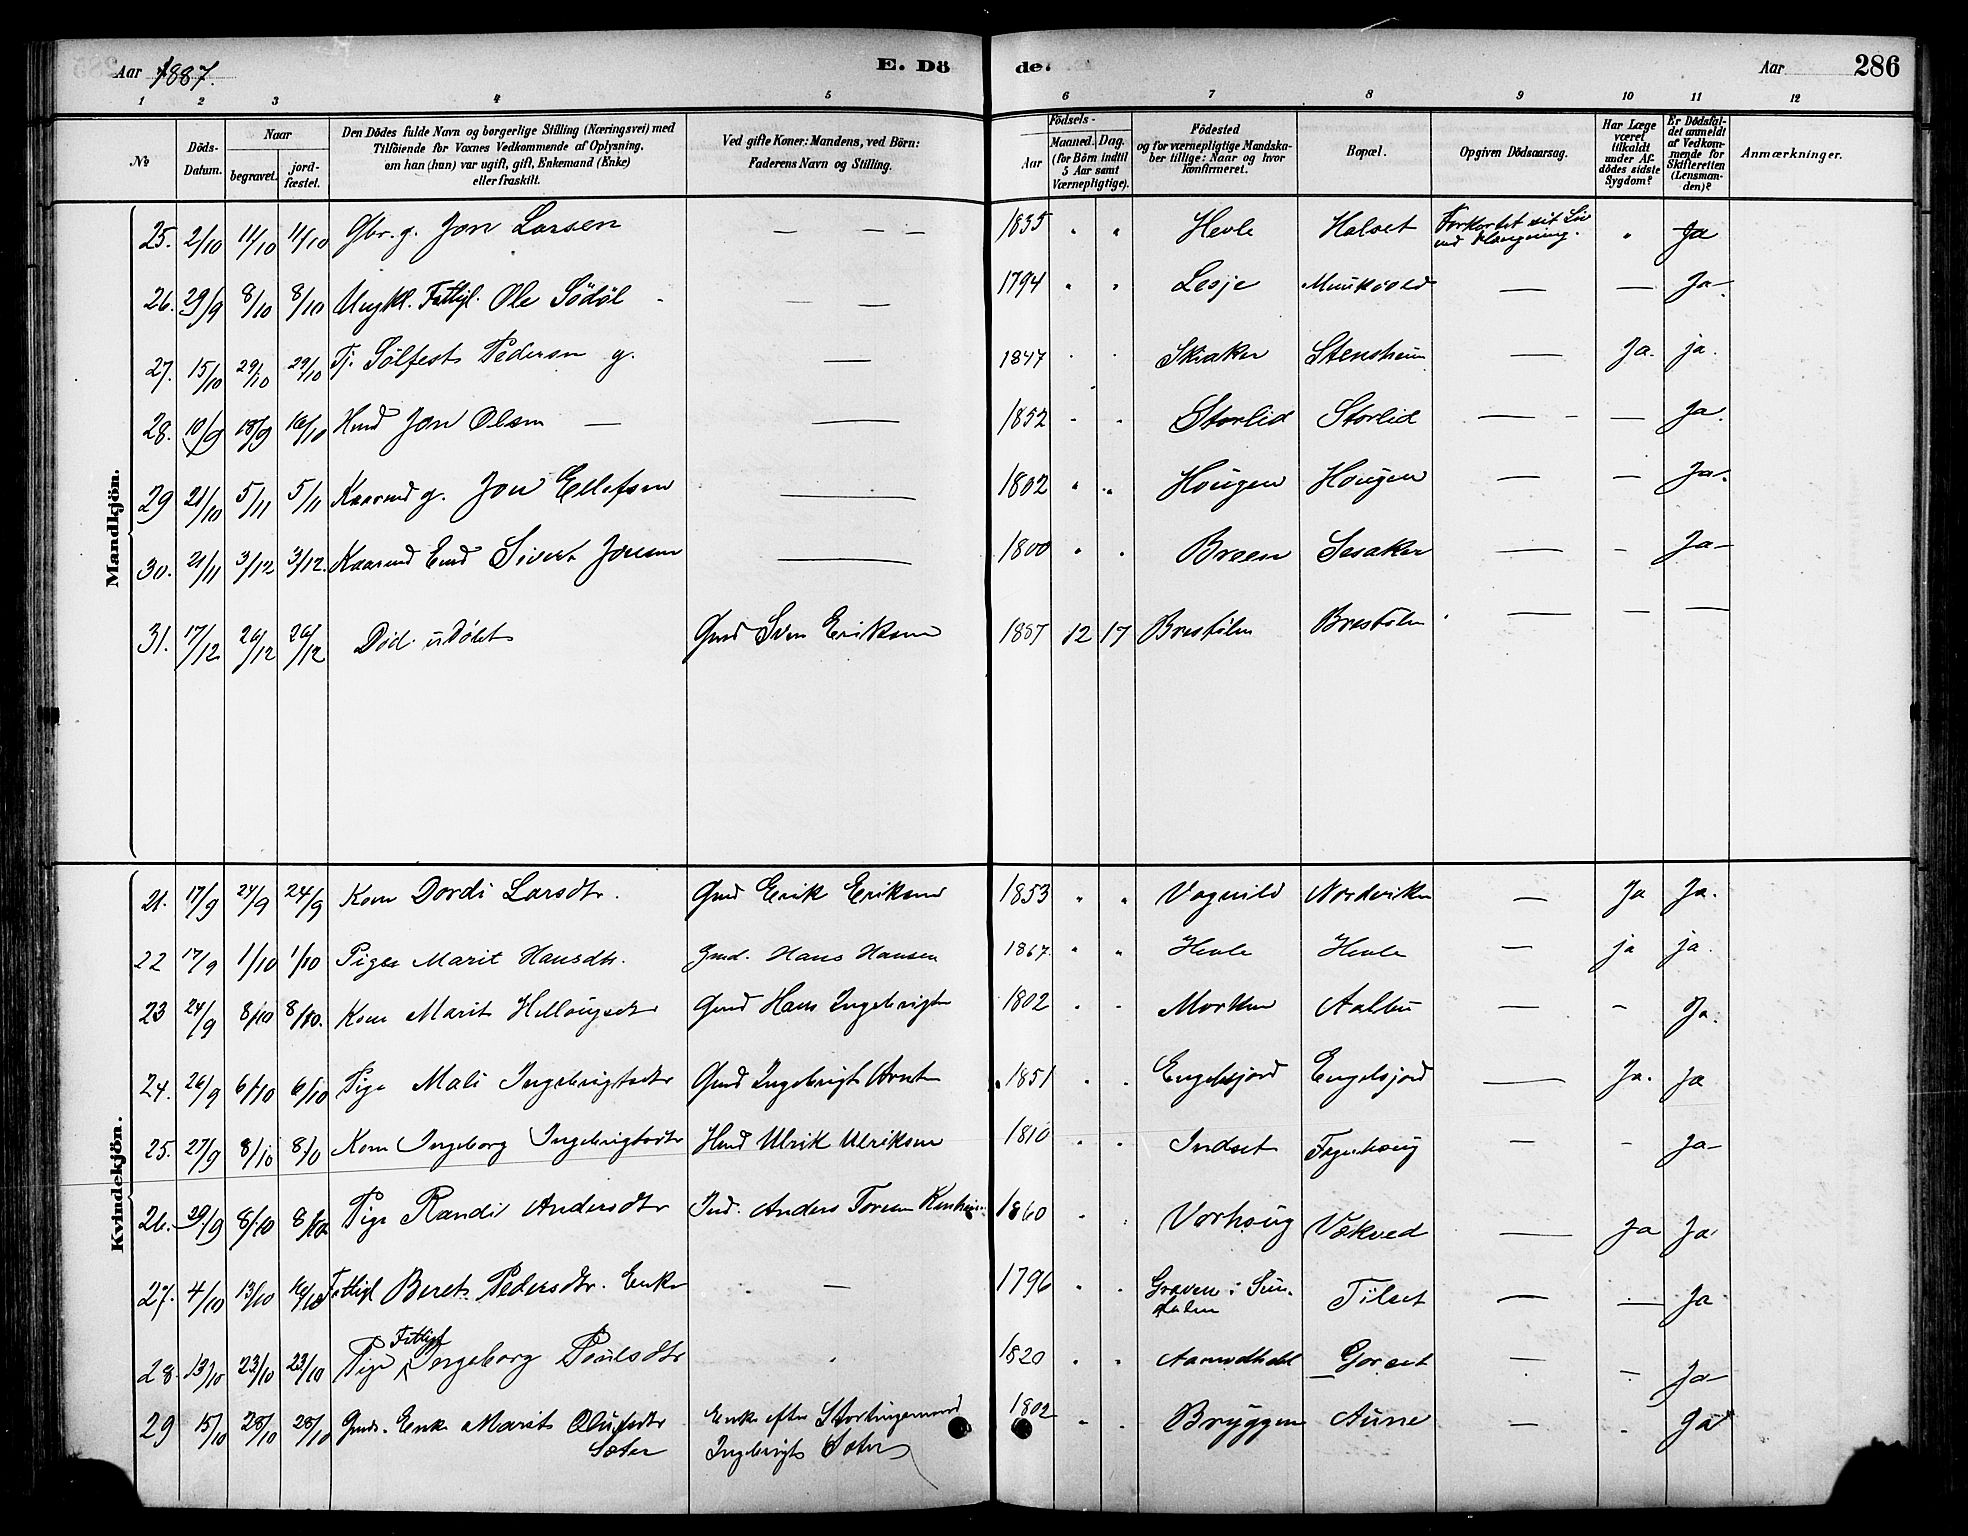 Aar 1887. E. Dö
de. Aar 286
1 2 3 4 5 6 7 8 9 10 11 12
No
Döds-Datum.
Naar
begravet.
jord-fæstet.
Den Dödes fulde Navn og borgerlige Stilling (Næringsvei) med
Tilföiende for Voxnes Vedkommende af Oplysning,
om han (hun) var ugift, gift, Enkemand (Enke)
eller fraskilt.
Ved gifte Koner: Mandens, ved Börn:
Faderens Navn og Stilling.
Födsels-
Aar
Maaned. Dag.
(for Börn indtil
5 Aar samt
Værnepligtige).
Födested
og for værnepligtige Mandska-
ber tillige: Naar og hvor
konfirmeret.
Bopæl.
Opgiven Dödsaarsag.
Har Læge
været
tilkaldt
under Af-
dödes sidste
Sygdom?
Er Dödsfal-
det anmeldt
af Vedkom-
mende for
Skifteretten
(Lensman-
den)?
Anmærkninger.
Mandkjön.
25. 2/10 11/10 11/10 Gbr. g. Jon Larsen — — — 1835 " " Hevle Halset Forkortet sit Liv ved Hængning. " Ja
26. 29/9 8/10 8/10 Ungkl. Fattigl. Ole Södöl — — 1794 " " Lesje Munkvold — — Ja.
27. 15/10 29/10 29/10 Tj. Sölfest Pedersen g. — 1847 " " Skiaker Stensheim — Ja. ja.
28. 10/9 18/9 16/10 Hmd Jon Olsen — — 1852 " " Storlid Storlid — — Ja.
29 21/10 5/11 5/11 Kaarmd g. Jon Ellefsen — 1802 " " Hougen Hougen — — Ja.
30. 21/11 3/12 3/12. Kaarmd Emd Sivert Jonsen — 1800 " " Bræen Sesaker — – Ja—
31. 17/12 26/12 26/12 Död. udöbt Gmd Sven Eriksen 1887 12 17 Brestölen Brestölen — — —
Kvindekjön.
21. 17/9 24/9 24/9 Kone Dordi Larsdtr. Gmd Erik Eriksen 1853 " " Vognild Nordviken — Ja Ja.
22 17/9 1/10 1/10 Pige Marit Hansdtr. Gmd. Hans Hansen 1867. " " Hevle Hevle — ja ja.
23 24/9 8/10 8/10. Kone Marit Hellougsdtr Gmd Hans Ingebrigtsn 1802 " " Morken Aalbu — – Ja.
24. 26/9 6/10 6/10 Pige Mali Ingebrigtsdtr Gmd Ingebrigt Arntsn 1851 " " Engelsjord Engelsjord — Ja. ja
25. 27/9 8/10 8/10 Kone Ingeborg Ingebrigtsdtr Hmd Ulrik Ulriksen 1810 " " Indset Fagerhoug — – Ja—
26. 29/9 8/10 8/10 Pige Randi Andersdtr Ind. Anders Toresen 1860 " " Vorhoug Vekved — Ja Ja.
27. 4/10 13/10 16/10 Fattigl Beret Pedersdtr. Enke — 1796 " " Graven i Sun-dalen Tilset — — Ja
28. 13/10 23/10 23/10 Pige Fattigl Ingeborg Poulsdtr " 1820 " " Aamodthokl Gorset — – Ja—
29 15/10 28/10 28/10 Gmds. Enke Marit Olufsdtr Sæter Enke efter Stortingsmand Ingebrigt Sæter 1802 " " Bryggen Aune — – Ja